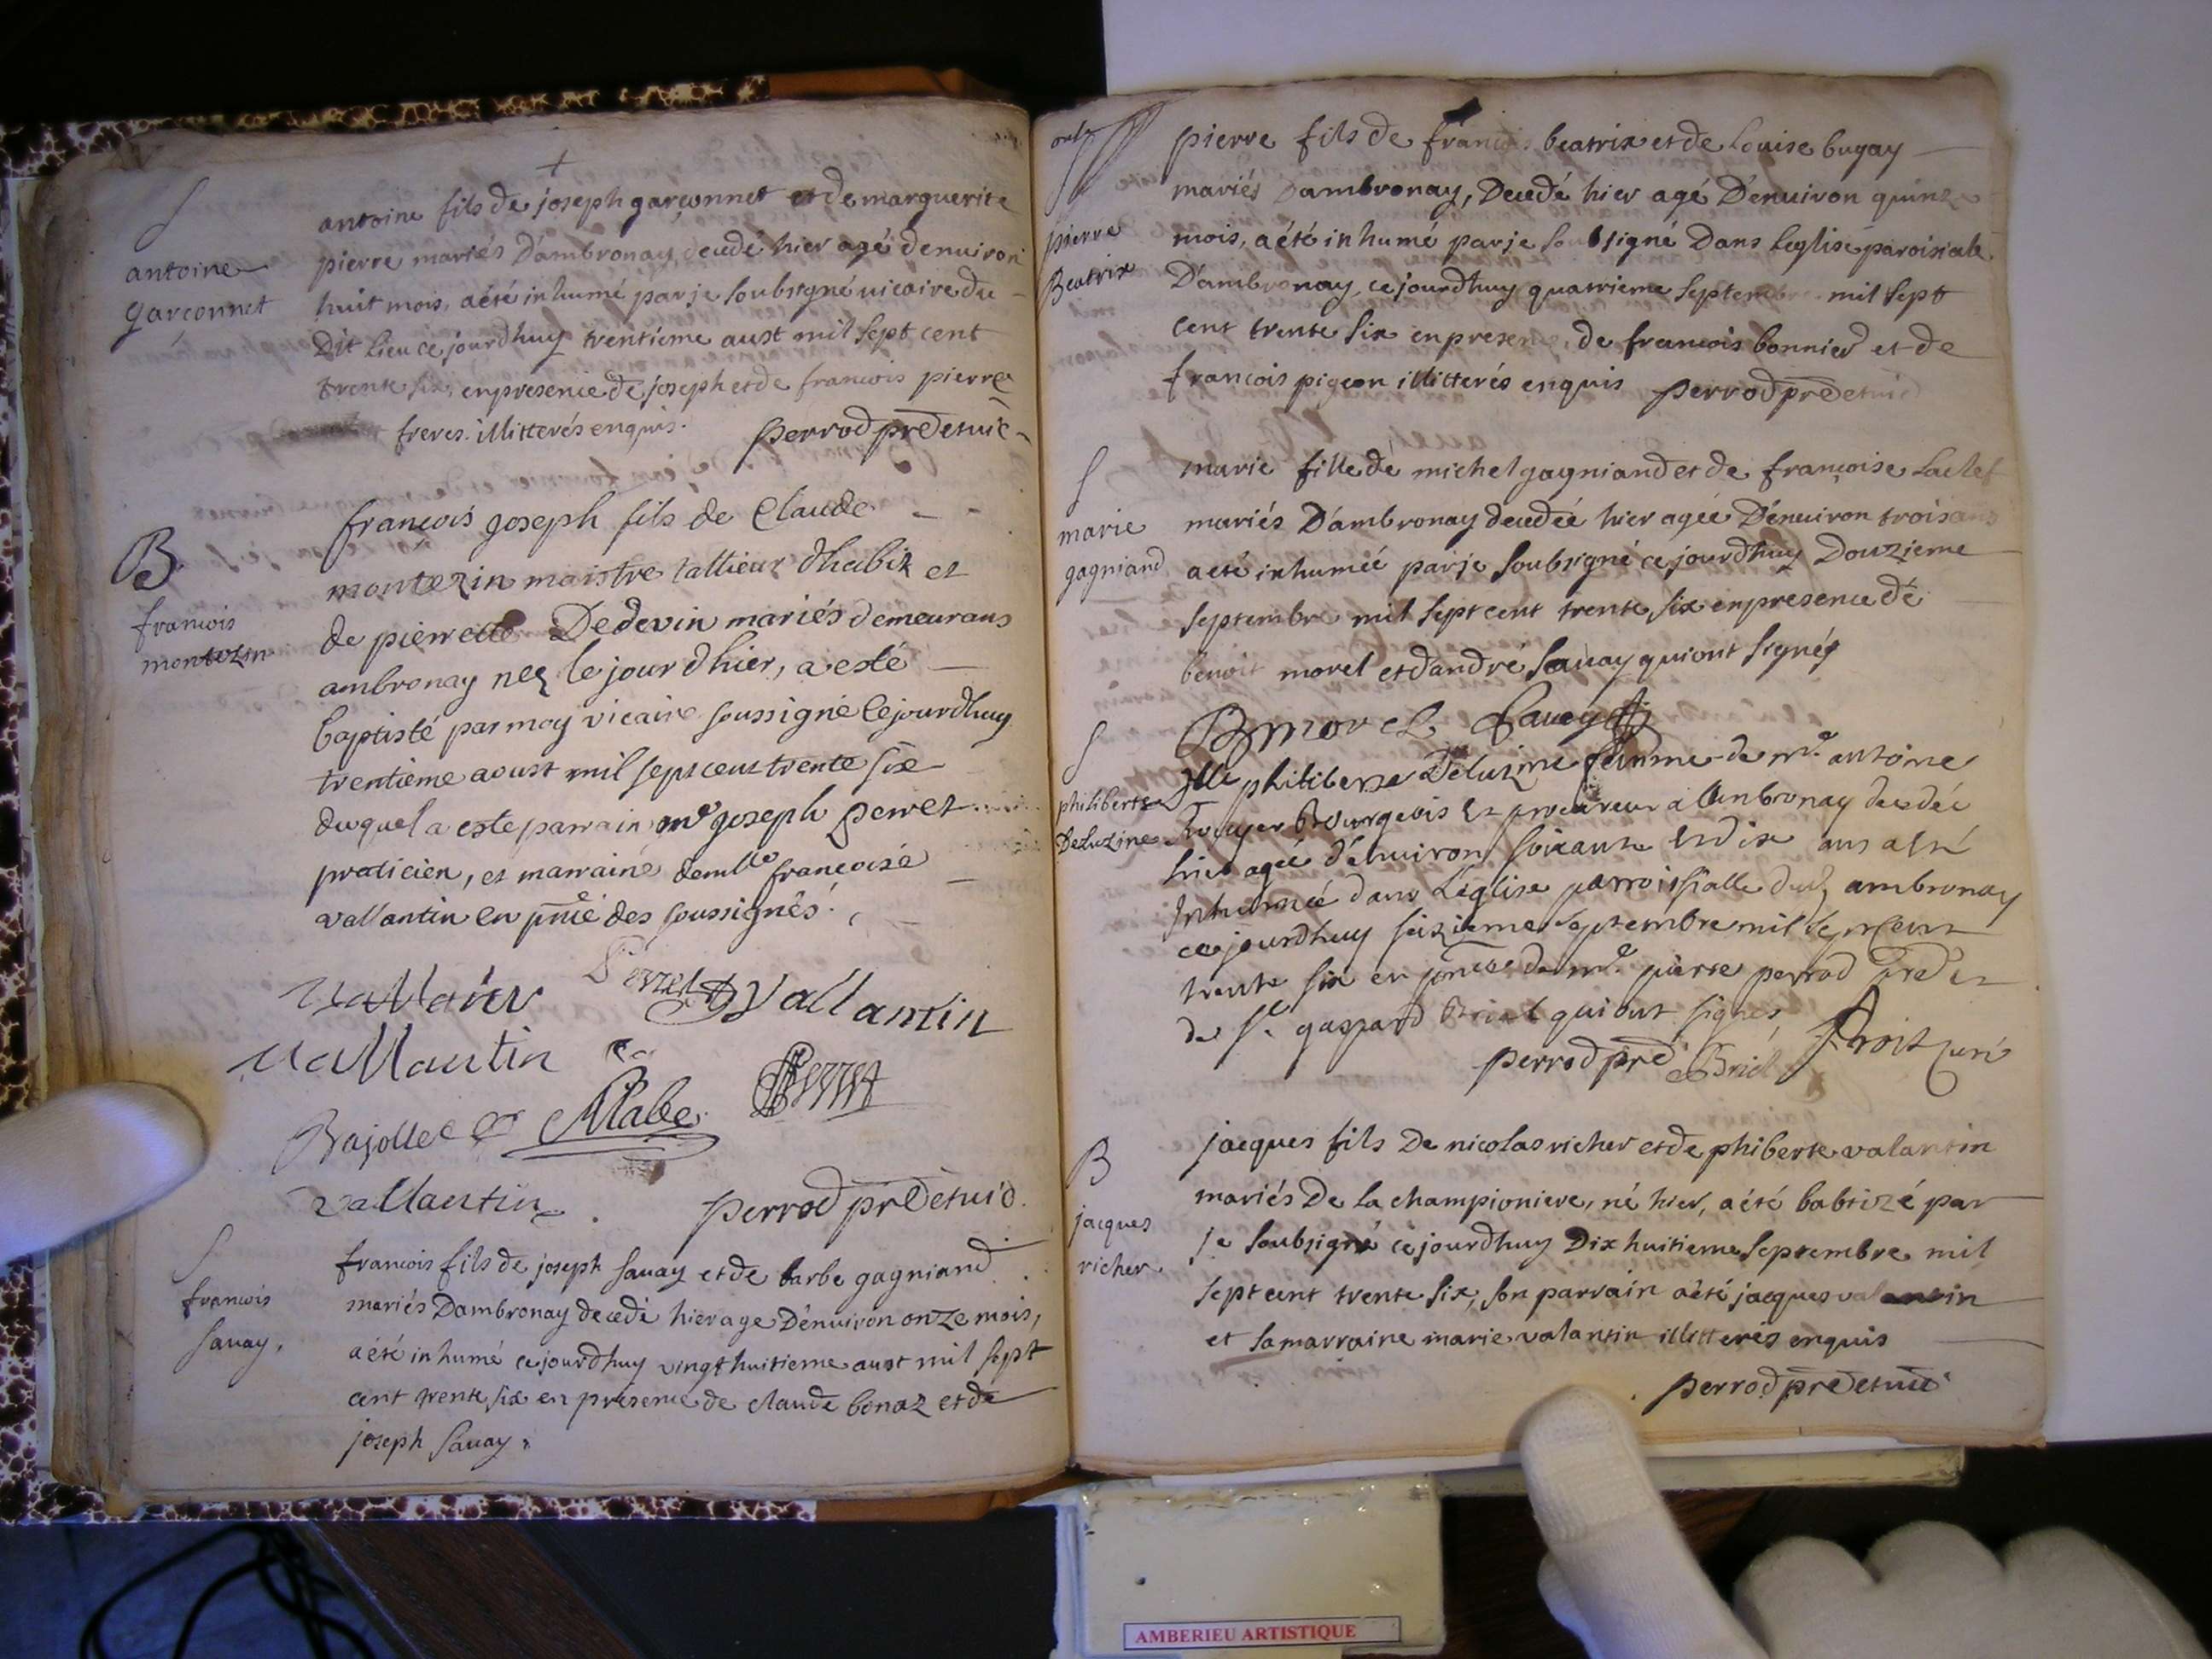 S
antoine
garconnet
antoine fils de joseph garçonnet et de marguerite
pierre mariés D'ambronay, decedé hier agé denuiron
huit mois, a été inhumé par je soubsigné uicaire du
Dit Lieu ce jourdhuy trentieme aust mil sept cent
trente six, en presence de joseph et de francois pierre
freres illitterés enquis. perrod prē et uic
B
francois
montezin
françois joseph fils de Claude
montezin maistre tallieur dhabit et
de pierrette Dedevin mariés demeurans
ambronay nez le jour dhier, a esté
baptisté par moy vicaire soussigné Cejourdhuy
trentieme aoust mil sept cent trente six
duquel a este parrain mr joseph perret
praticien, et marraine demlle françoise
vallantin en pnce des soussignés.
Perret Vallantin
Vallantin
Bajollet
vallantin perrod prē et uic
S
francois
sauay,
francois fils de joseph sauay et de barbe gagniand
mariés Dambronay decedé hier age Dénuiron onze mois,
a été inhumé ce jourdhuy vingt huitieme aust mil sept
cent trente six en presence de claude bonaz et de
joseph sauay.
S
pierre
Beatrix
pierre fils de francois beatrix et de Louise bugay
mariés D'ambronay, Decedé hier agé D'enuiron quinze
mois, a été inhumé par je soubsigné Dans Leglise paroisiale
D'ambronay, ce jourdhuy quatrieme septembre mil sept
cent trente six en presence de francois bonnier et de
francois pigeon illitterés enquis perrod prē et uic
S
marie
gagniand
marie fille de michel gagniand et de françoise Laclef
mariés D'ambronay decedée hier agée D'énuiron trois ans
a eté inhumée par je soubsigné ce jourdhuy Douzieme
septembre mil sept cent trente six en presence de
benoit morel et d'andré sauay qui ont signés
B morel Sauey
S
philiberte
Deluzine
Dlle philiberte Deluzine femme de mr. antoine
bourgeois et procureur a Ambronay decedée
hier agée d'enuiron soixante et dix ans a esté
Inhumée dans L'église parroissialle dud ambronay
cejourdhuy seizieme septembre mil sept cent
trente six en pnce de mr. pierre perrod pred et
de sr. gaspard Briel qui ont signés
perrod prē Briel curé
B
jacques
richer
jacques fils De nicolas richer et de phiberte valantin
mariés De La championiere, né hier, a été babtizé par
je soubsigné ce jourdhuy Dix huitieme septembre mil
sept cent trente six, son parrain a été jacques valantin
et sa marraine marie valantin illitterés enquis
perrod prē et uic
AMBERIEU ARTISTIQUE